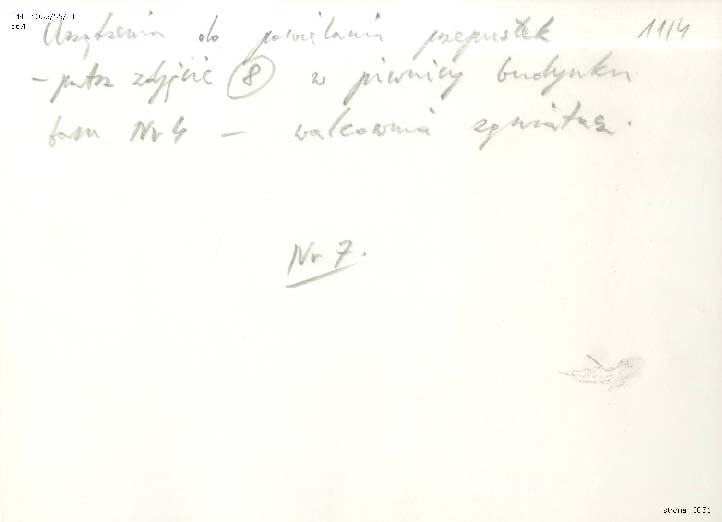 Urządzenia do powielania przepustek 11/4
- patrz zdjęcie 8 w piwnicy budynku
Nr 4 - walcownia zgniatacz.
Nr 7.
strona